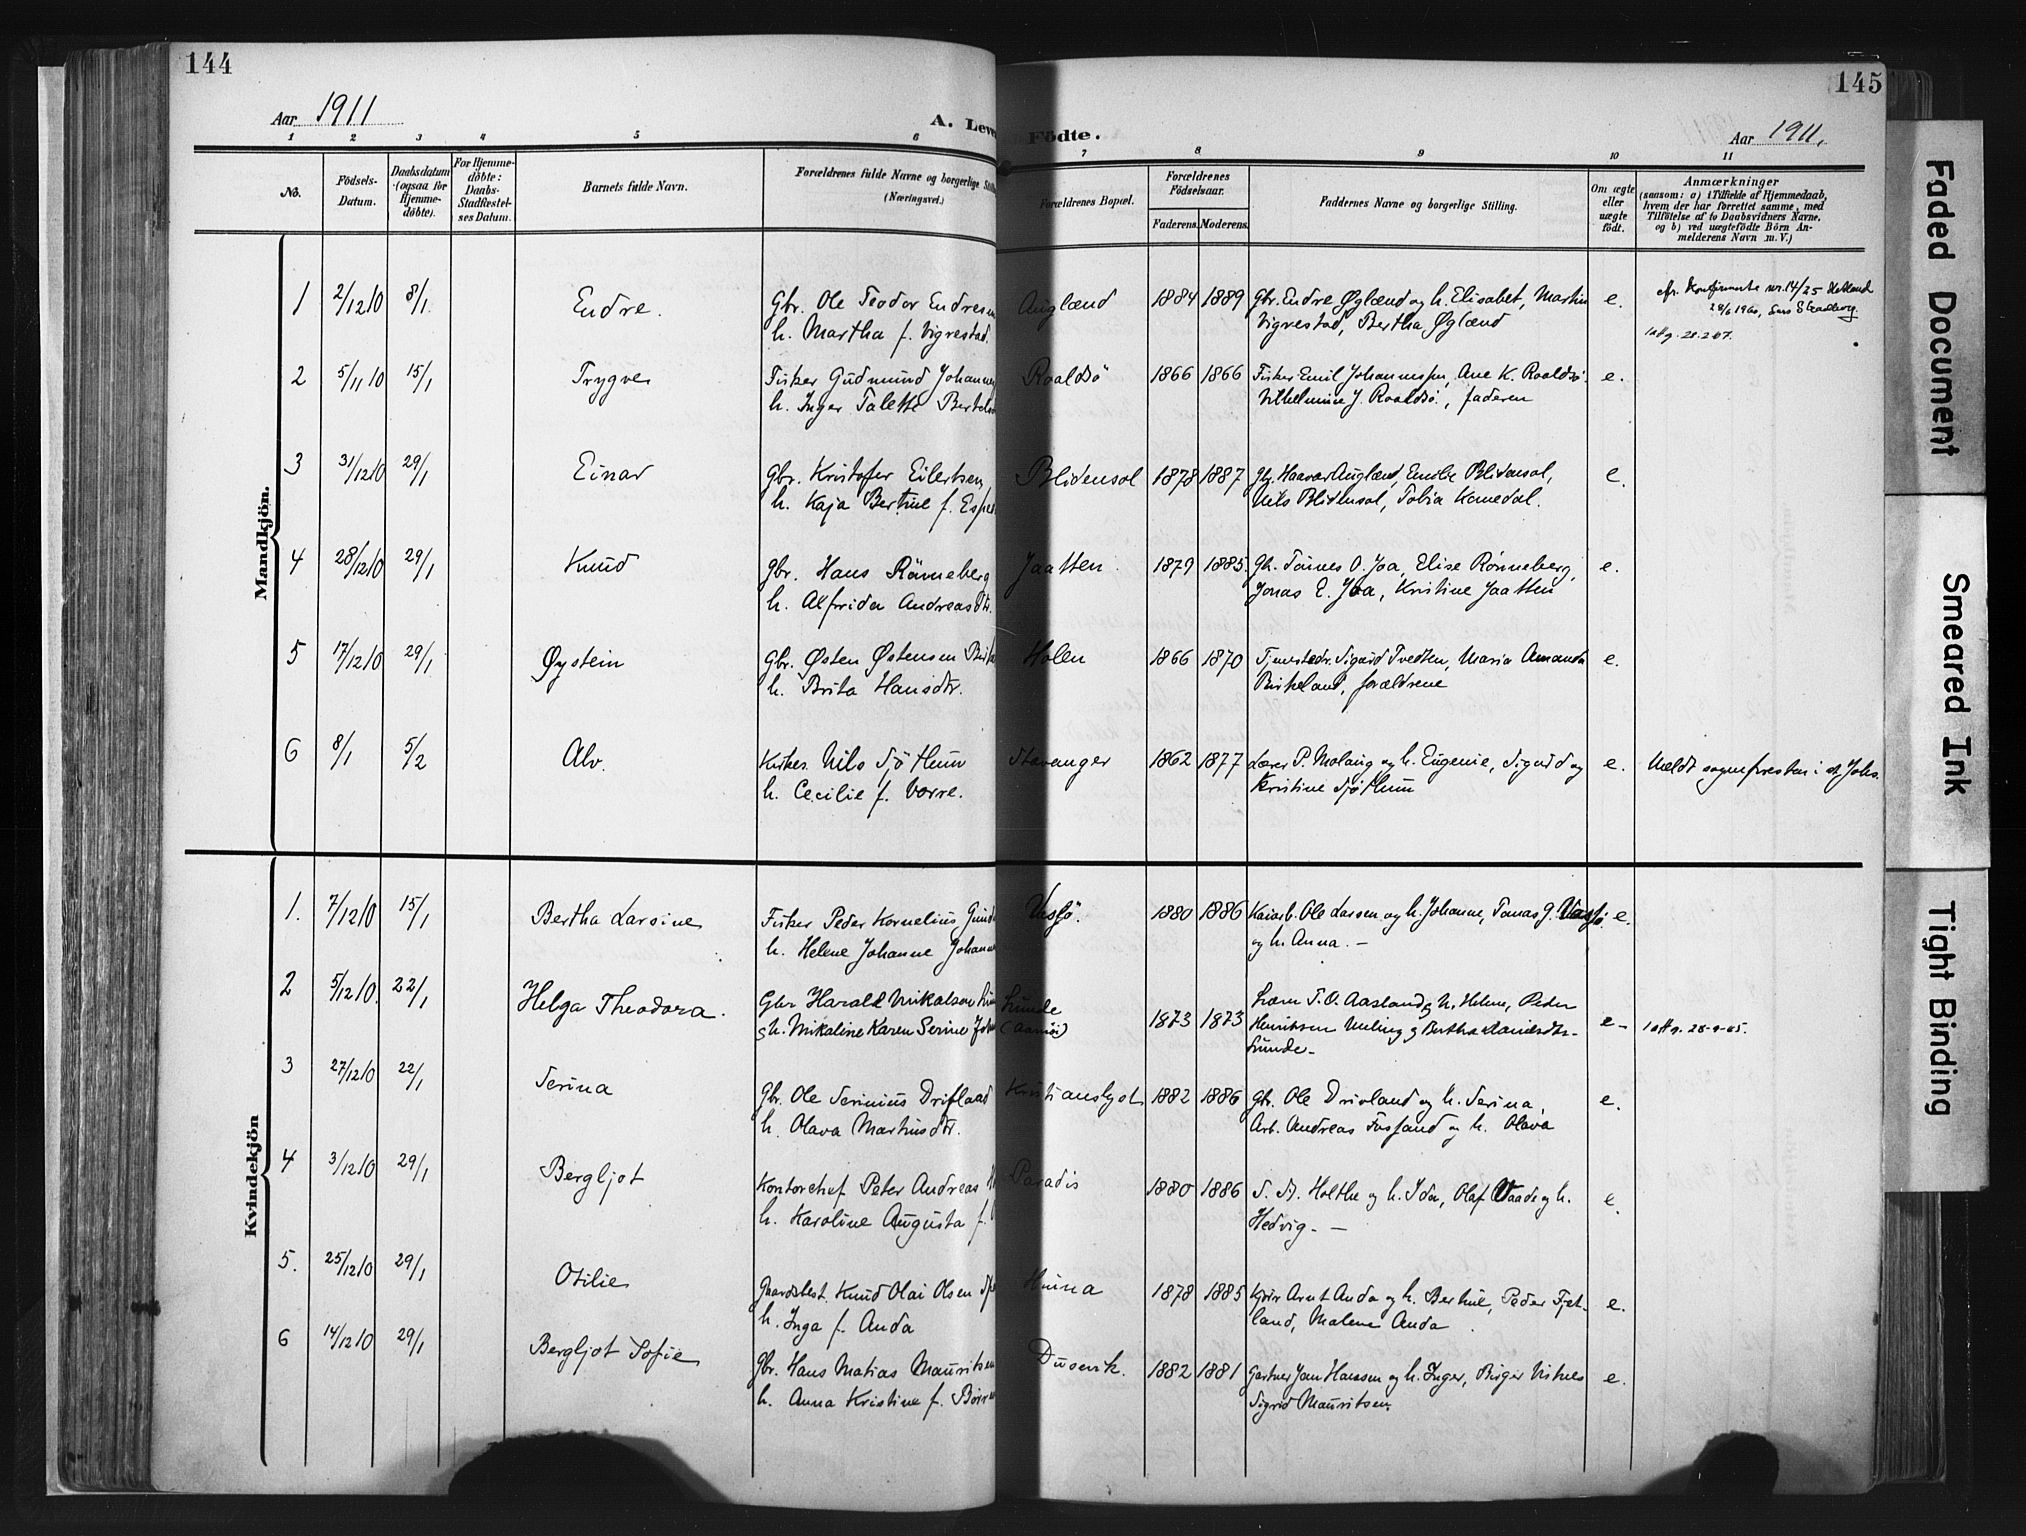 144
Aar 1911
A. Leve
1 2 3 4 5 6
No.
Födsels-
Datum.
Daabsdatum
(ogsaa for
Hjemme-
døbte).
For Hjemme-
døbte:
Daabs-
Stadfæstel-
ses Datum.
Barnets fulde Navn.
Forældrenes fulde Navne og borgerlige Stilli
(Næringsvei.)
Mandkjön.
1 2/12 10 8/1 Endre. Gbr. Ole Teodor Endresen
h. Martha f. Vigrestad.
2 5/11 10 15/1 Trygve Fisker Gudmund Johannes
h. Inger Talette Bertels
3 31/12 10 29/1 Einar Gbr. Kristofer Eilertsen
h. Kaja Bertine f. Espe
4 28/12 10 29/1 Knud Gbr. Hans Rönneberg
h. Alfrida Andreasdtr.
5 17/12 10 29/1 Øystein Gbr. Østen Østensen
h. Brita Hansdtr.
6 8/1 5/2 Alv. Nils Sjöthun
h. Cecilie f. Vorre.
Kvindekjön
1. 7/12 10 15/1 Bertha Larsine Fisker Peder Kornelius Gund
h. Helene Johanne Johann
2 5/12 10. 22/1 Helga Theodora. Gbr Harald Mikalsen
h. Mikaline Karen Serine Joh
3 27/12 10 22/1 Serina Gbr. Ole Serinius Drifland
h. Olava Martinsdtr.
4 3/12 10 29/1 Bergljot Kontorchef Peter Andreas
h. Karoline Augusta f.
5. 25/12 10 29/1 Otilie Gaardsbest. Knud Olai Olsen
h. Inga f. Anda
6 14/12 10 29/1 Bergljot Sofie Gbr. Hans Matias Mauritsen
h. Anna Kristine f.
145
Födte.
Aar 1911.
7 8 9 10 11
Forældrenes Bopæl.
Forældrenes
Födselsaar.
Faderens. Moderens.
Faddernes Navne og borgerlige Stilling.
Om ægte
eller
uægte
født.
Anmærkninger
(saasom: a) i Tilfælde af Hjemmedaab,
hvem der har forrettet samme, med
Tilföielse af to Daabsvidners Navne,
og b) ved uægtefödte Börn An-
melderens Navn m. V.)
Auglænd 1884 1889 Gbr. Endre Øglænd og h. Elisabet, Martin
Vigrestad, Bertha Øglænd e.
nr. 14/25 Hetland
1960,
Roaldsö 1866 1866 Fisker Emil Johannessen, Ane K. Roaldsö.
Vilhelmine J. Roaldsö, faderen e.
Blidensol 1878 1887 Haavar Auglænd, Emilie Blidensol,
Nils Blidensol, Tobia Kanedal. e.
Jaatten 1879 1885 Gbr. Tönnes O. Joa, Elise Rönneberg,
Jonas E. Joa, Kristine Jaatten e.
Holen 1866 1870 Sigurd Tvedten, Maria Amanda
Birkeland, forældrene e.
Stavanger 1862 1877 Lærer P. Molaug og h. Eugenie, Sigurd og
Kristine Sjöthun e. Meldt sognepresten i St. Johs.
Vassö. 1880 1886 Ole Larsen og h. Johanne, Tomas G. Vassö
og h. Anna. – e.
Lunde
(Aamöi) 1873 1873 T. O. Aasland og h. Helene, Peder
Henriksen Meling og Bertha Danielsdtr.
Lunde – e –
Kristianslyst 1882 1886 Gbr. Ole Drivland og h. Serina,
Arb. Andreas Fusfand og h. Olava e.
Paradis 1880 1886 Holthe og h. Ida, Olaf Vaade og h.
Hedvig. – e.
Hinna 1878 1885 Arnt Anda og h. Bertine, Peder Fjet-
land, Malene Anda e.
Dusevik. 1882 1881 Gartner Jan Hansen og h. Inger, Birger Vistnes
Sigrid Mauritsen. e.
Faded Document
Smeared Ink
Tight Binding